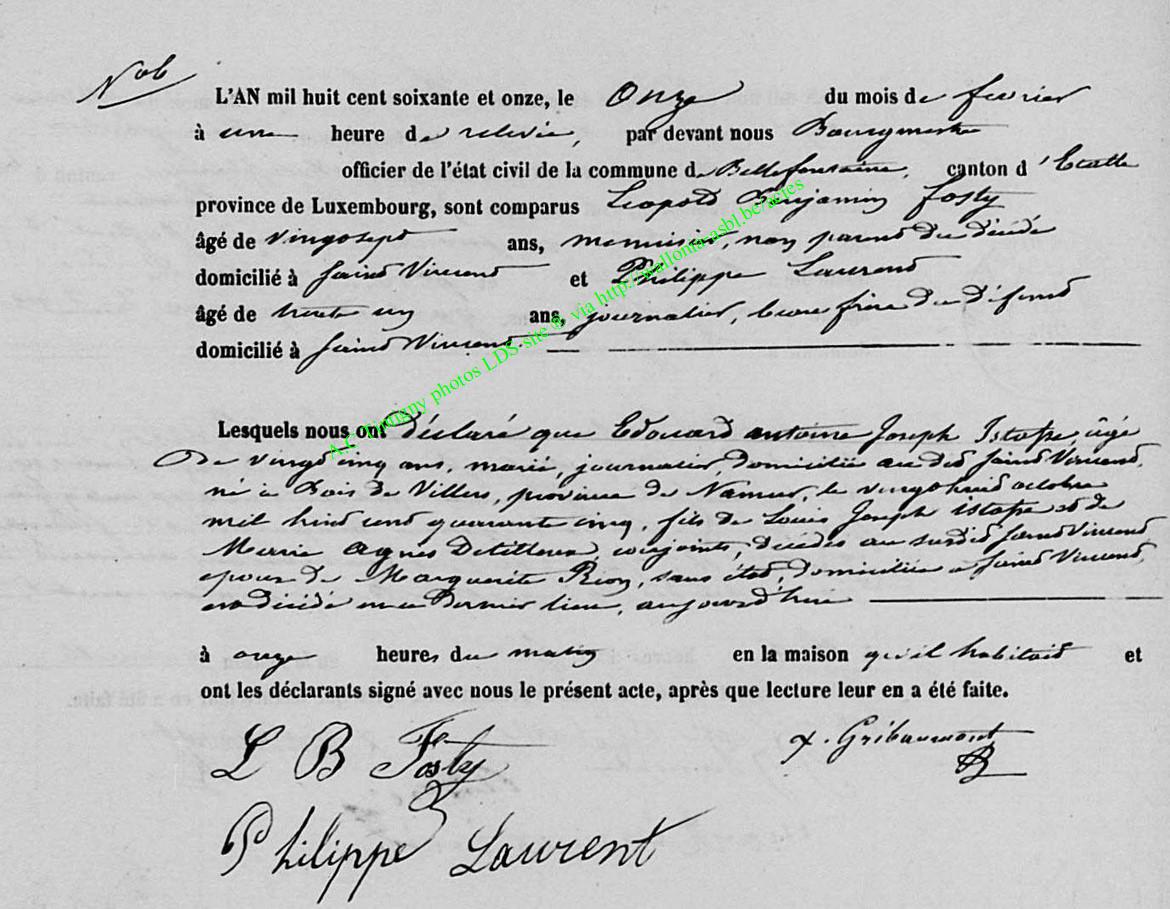 N° 6
L'AN mil huit cent soixante et onze, le Onze du mois de fevrier
à une heure de relevée, par devant nous Bourgmestre
officier de l'état civil de la commune de Bellefontaine, canton d'Etalle
province de Luxembourg, sont comparus Leopold Benjamin Fosty
âgé de vingt sept ans, menuisier, non parent du décédé
domicilié à Saint Vincent et Philippe Laurent
âgé de trente un ans, journalier, beau frère du défunt
domicilié à Saint Vincent
Lesquels nous ont déclaré que Edouard antoine Joseph Istasse, âgé
de vingt cinq ans, marié, journalier, domicilié au dit Saint Vincent,
né à Bois de Villers, province de Namur, le vingt huit octobre
mil huit cent quarante cinq, fils de Louis Joseph istasse et de
Marie Agnes Detilleux, conjoints, décédés au susdit Saint Vincent,
epoux de Marguerite Rion, sans état, domiciliée à Saint Vincent,
est décédé en ce dernier lieu, aujourd'hui
à onze heures du matin en la maison qu'il habitait et
ont les déclarants signé avec nous le présent acte, après que lecture leur en a été faite.
L B Fosty
x. Gribaumont
Philippe Laurent
A.C. Tintigny photos LDS-site © via http://wallonia-asbl.be/actes